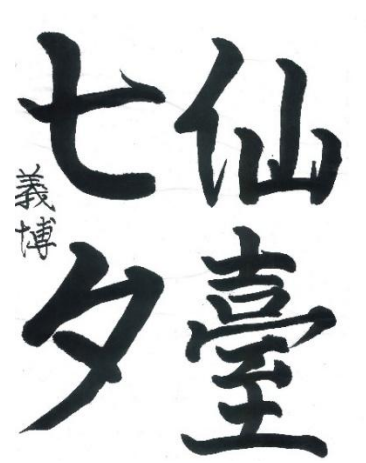 仙臺
七夕
義博